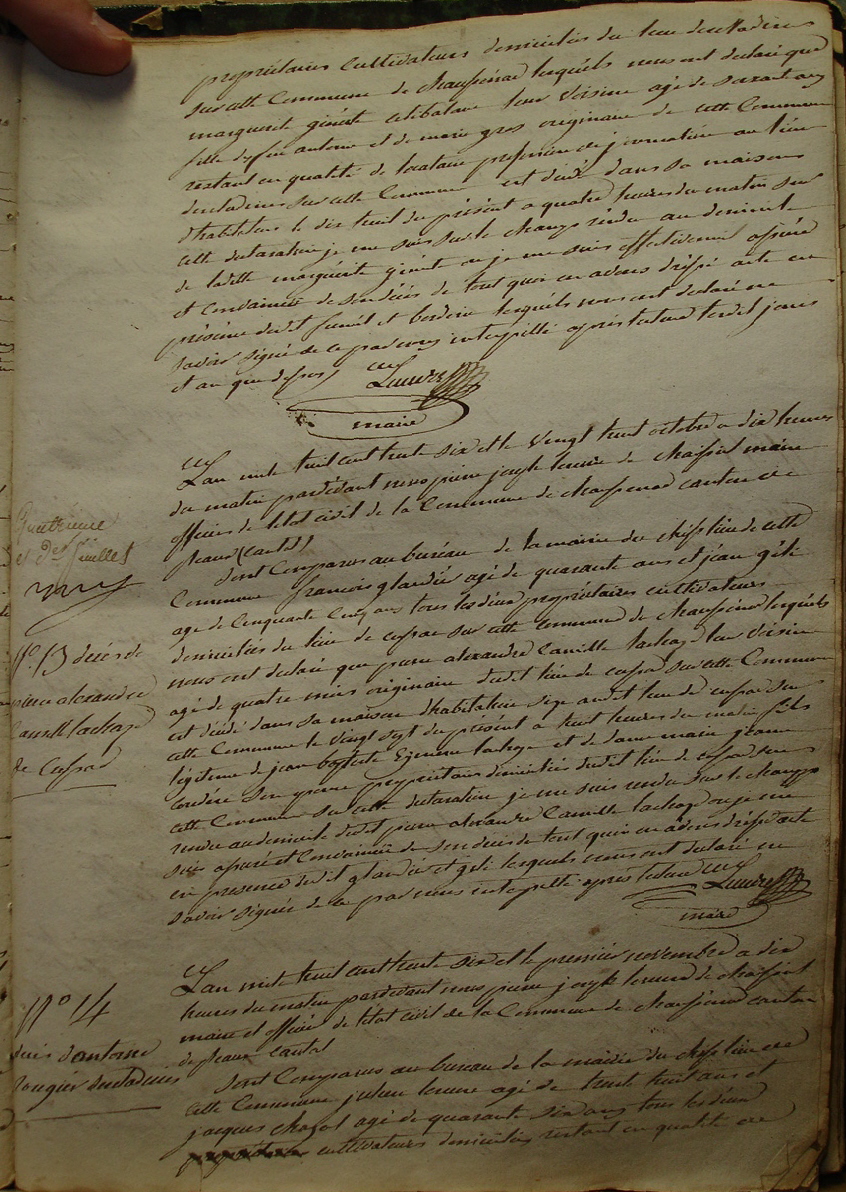 propriétaires cultivateurs domiciliés du lieu des
sur cette Commune de chaussenac lesquels nous ont declaré que
marguerite géneste celibataire leur voisine agé de soixante ans
fille de feu antoine et de marie gros originaire de cette Commune
restant en qualité de locataire profession de journalière au lieu
sur cette Commune est décédé dans sa maison
d'habitation le dix huit du présent a quatre heures du matin sur
cette declaration je me suis sur le champ rendu au domicile
de ladite marguerite géneste ou je me suis effectivement assuré
et convaincu de son décés de tout quoi en avons dréssé acte en
présence desdit et lesquels nous ont declaré ne
savoir signé de ce par nous interpellé apres lecture lesdit jours
et an que dessus
maire
L'an mile huit cent trente six et le vingt huit octobre a dix heures
du matin pardevant nous pierre joseph de maire
officier de létat civil de la Commune de chaussenac canton de
pleaux (cantal)
Sont Comparus au bureau de la mairie du chef lieu de cette
Commune francois glandié agé de quarante ans et jean géli
age de cinquante cinq ans tous les deux propriétaires cultivateurs
domiciliés du lieu de cussac sur cette commune de chaussenac lesquels
nous ont declaré que pierre alexandre Camille lachaze leur voisin
agé de quatre mois originaire dudit lieu de cussac sur cette Commune
est décédé dans sa maison d'habitation size audit lieu de cussac sur
cette Commune le vingt sept du présent a huit heures du matin fils
légitime de jean baptiste lachaze et de jeanne
son épouse propriétaires domiciliés dudit lieu de cussac sur
cette Commune sur cette declaration je me suis rendu sur le champ
rendu au domicile dudit pierre alexandre Camille lachaze ou je me
suis assuré et Convaincu de son decés de tout quoi en avons dréssé acte
en presence desdit glandié et géli lesquels nous ont declaré ne
savoir signé de ce par nous interpellé apres lecture
maire
feuillet
N°. 13 décés de
pierre alexandre
Camille lachaze
de Cussac
L'an mile huit cent trente six et le premier novembre a dix
heures du matin pardevant nous pierre joseph de
maire et officié de létat civil de la Commune de chaussenac canton
de pleaux cantal
Sont Comparus au bureau de la mairie du chef lieu de
cette Commune julien agé de trente huit ans et
jacques chazot agé de quarante six ans tous les deux
cultivateurs domiciliés restant en qualité de
N° 14
décés d'antoine